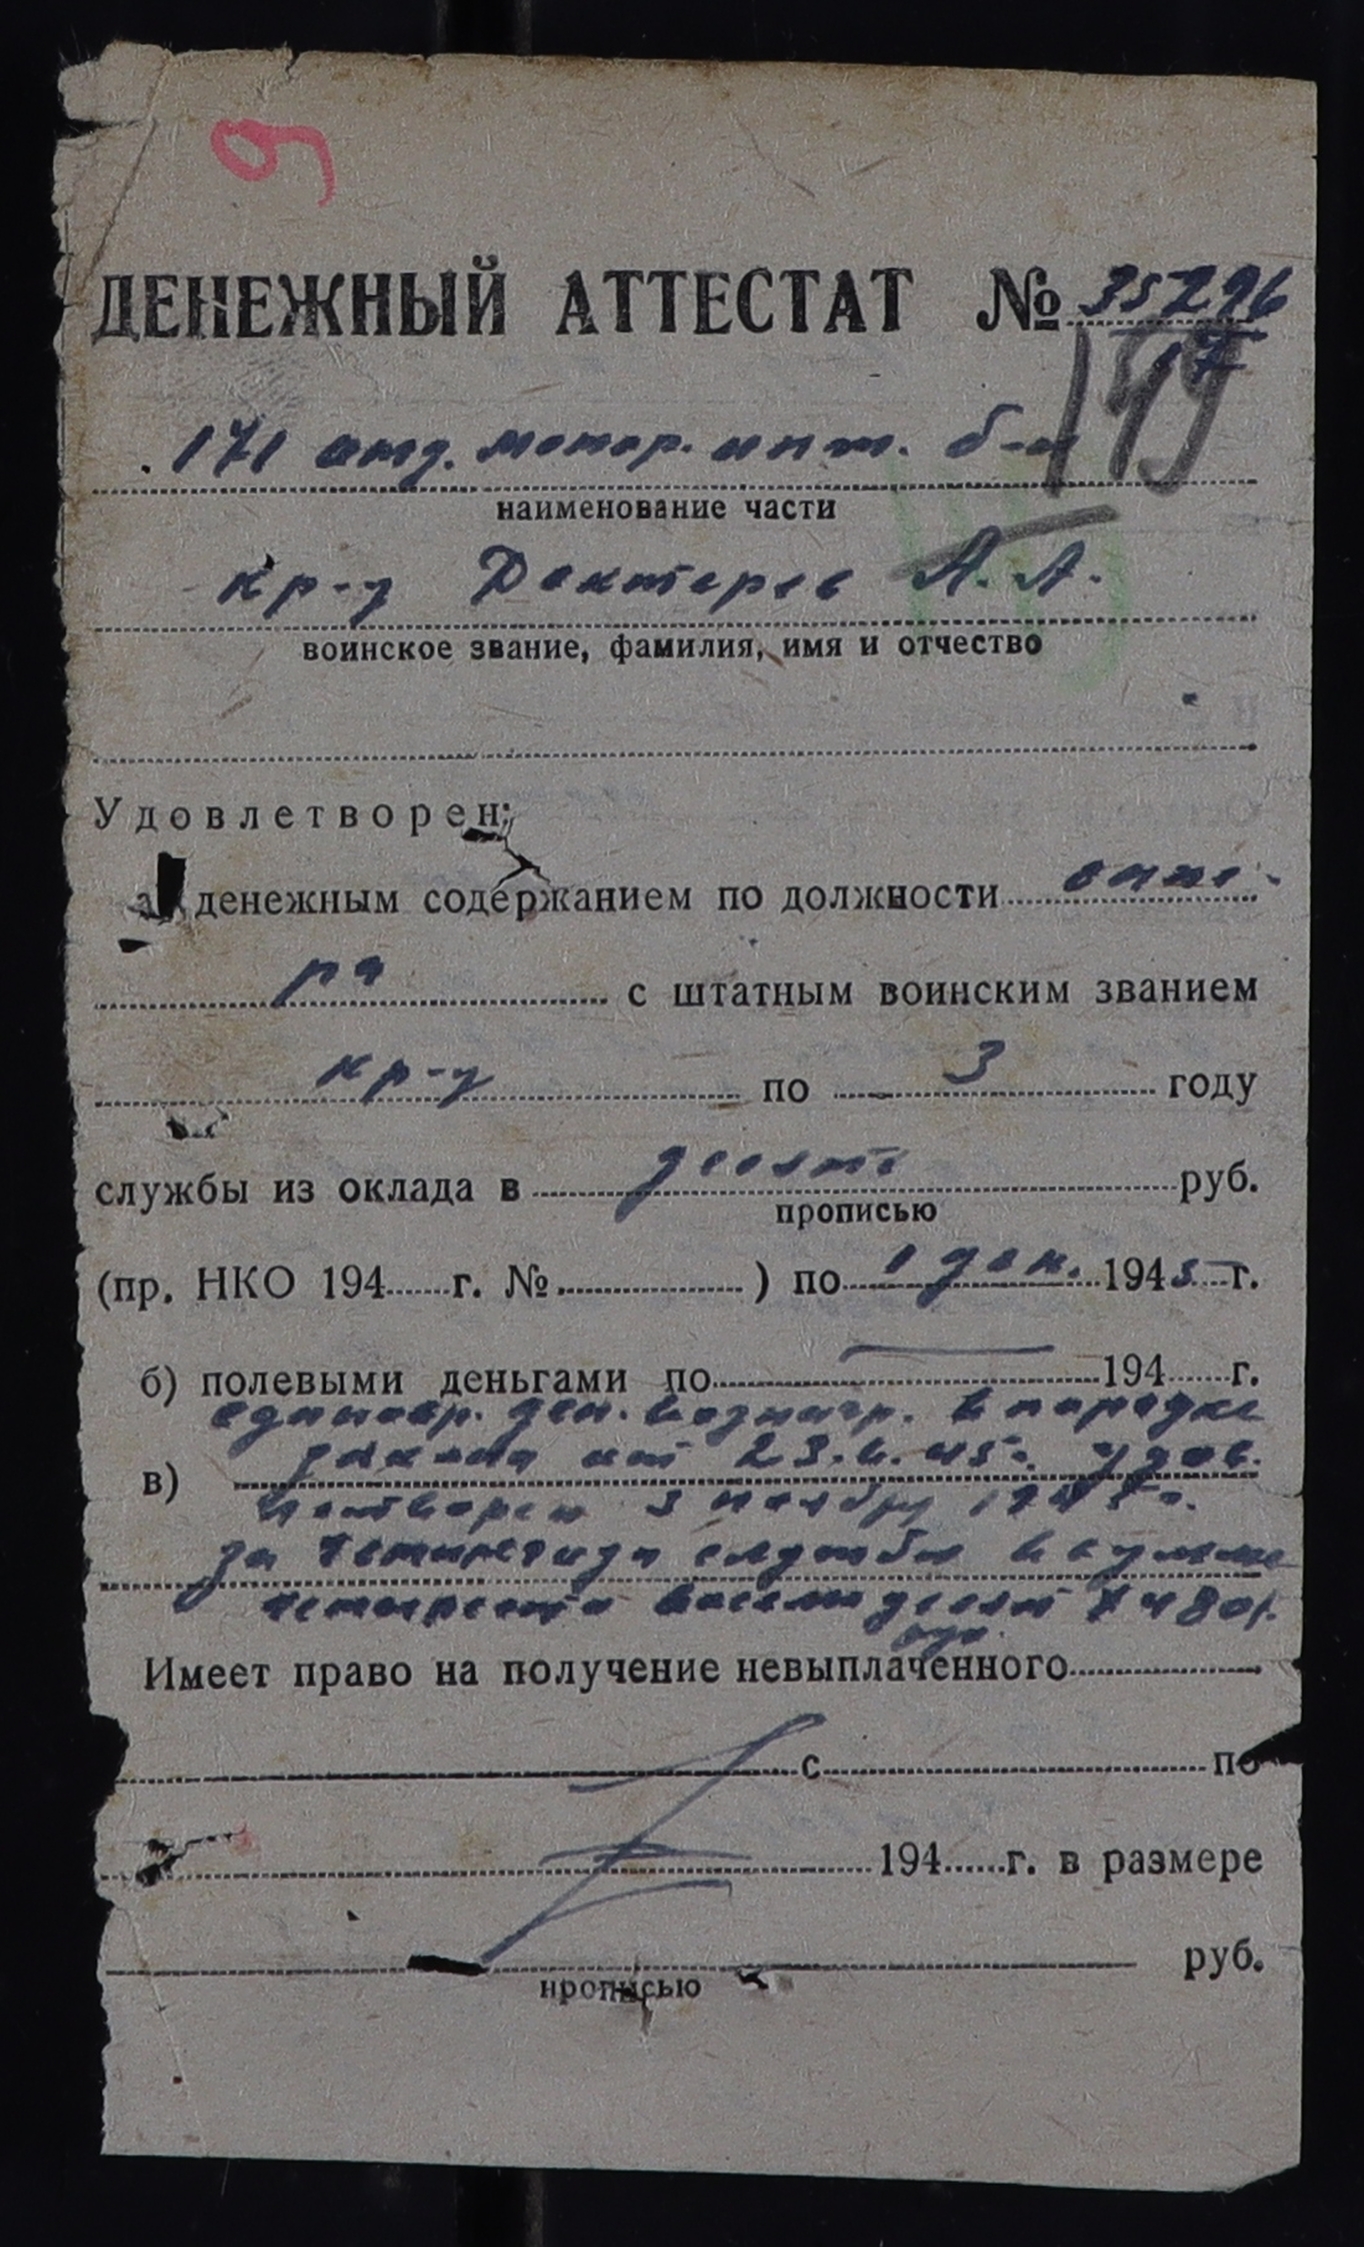 9
ДЕНЕЖНЫЙ АТТЕСТАТ № 35296
17
149
171 отд. мотор. инж. б-н
наименование части
кр-ц Дектерев А. А.
воинское звание, фамилия, имя и отчество
Удовлетворен:
а) денежным содержанием по должности сапе-
ра с штатным воинским званием
кр-ц по 3 году
службы из оклада в десять руб.
прописью
(пр. НКО 194 г. № ) по 1 дек. 1945 г.
б) полевыми деньгами по — 194 г.
единовр. ден. вознагр. в порядке
в) закона от 23.6.45г. удов.
3 ноября
за четыре года службы в сумме
четыреста восемьдесят /480/.
руб.
Имеет право на получение невыплаченного
с по
194 г. в размере
руб.
прописью